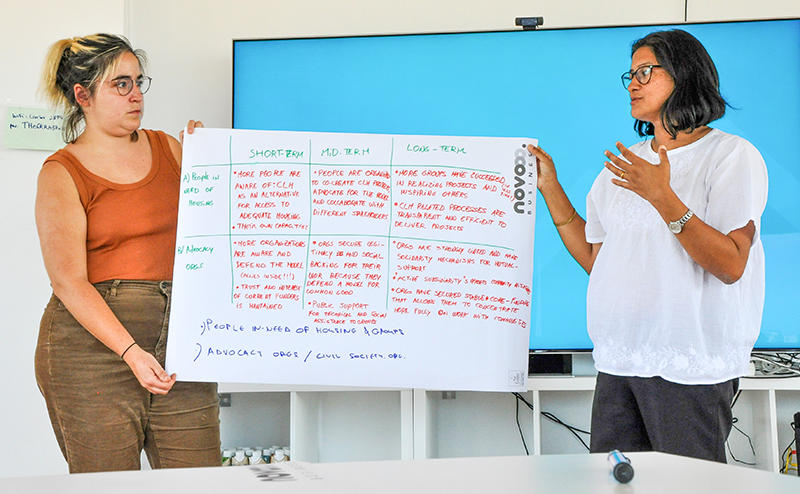 SHORT-TERM
MID-TERM
LONG-TERM
A) PEOPLE IN
NEED OF
HOUSING
• MORE PEOPLE ARE
AWARE OF: CLH
AS AN ALTERNATIVE
FOR ACCESS TO
ADEQUATE HOUSING
• THEIR OWN CAPACITIES
• PEOPLE ARE ORGANIZED
TO CO-CREATE CLH PROJECTS
ADVOCATE FOR THE MODEL
AND COLLABORATE WITH
DIFFERENT STAKEHOLDERS
• MORE GROUPS HAVE SUCCEEDED
IN REALIZING PROJECTS AND
INSPIRING OTHERS
• CLH RELATED PROCESSES ARE
TRANSPARENT AND EFFICIENT TO
DELIVER PROJECTS
B) ADVOCACY
ORGS
• MORE ORGANIZATIONS
ARE AWARE AND
DEFEND THE MODEL
(ALLIES INSIDE!!!)
• TRUST AND INTEREST
OF CURRENT FUNDERS
IS MAINTAINED
• ORGS SECURE LEGI-
TIMACY AND SOCIAL
BACKING FOR THEIR
WORK BECAUSE THEY
DEFEND A MODEL FOR
COMMON GOOD
• PUBLIC SUPPORT
FOR TECHNICAL AND SOCIAL
ASSISTANCE TO GROUPS
• ORGS ARE STRONGLY UNITED AND HAVE
SOLIDARITY MECHANISMS FOR MUTUAL
SUPPORT
• ORGS HAVE SECURED STABLE & CORE-FUNDING
THAT ALLOW THEM TO CONCENTRATE
MORE FULLY ON WORK WITH COMMUNITIES
PEOPLE IN-NEED OF HOUSING & GROUPS
ADVOCACY ORGS / CIVIL SOCIETY. ORG.
novovo